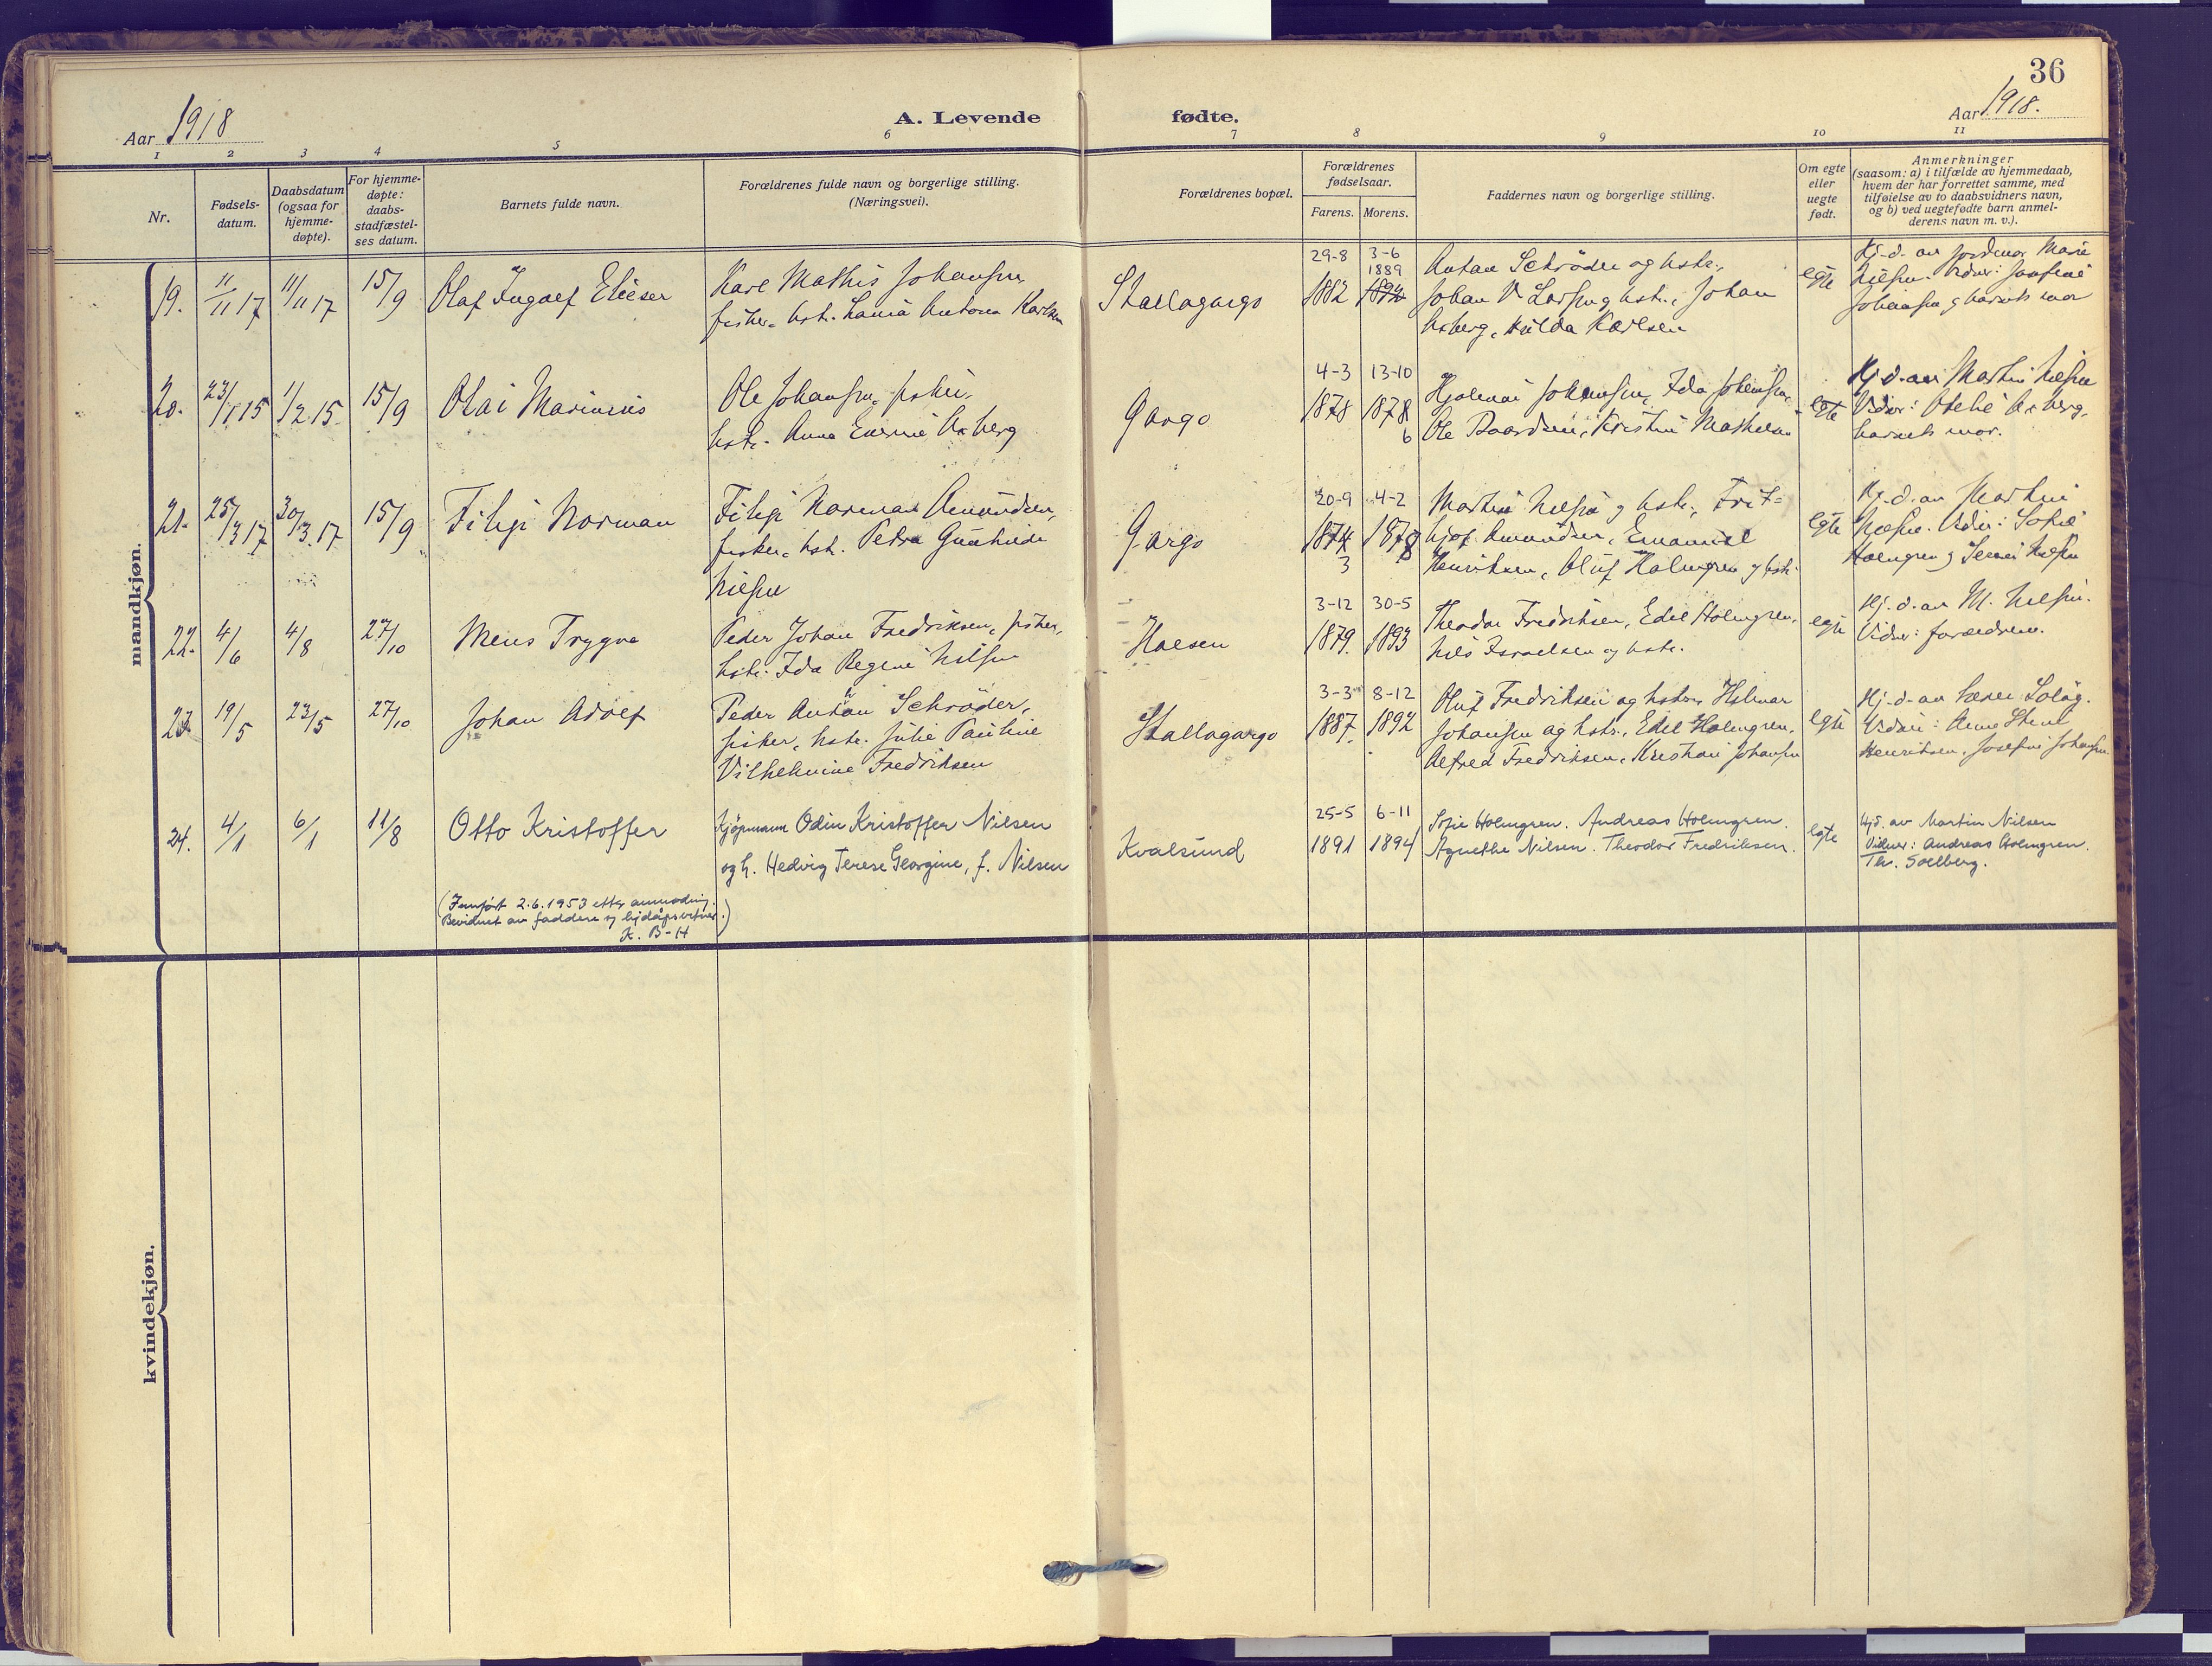 36
Aar 1918
A. Levende fødte.
Aar 1918.
1 2 3 4 5 6 7 8 9 10 11
Nr.
Fødsels-
datum.
Daabsdatum
(ogsaa for
hjemme-
døpte).
For hjemme-
døpte:
daabs-
stadfæstel-
ses datum.
Barnets fulde navn.
Forældrenes fulde navn og borgerlige stilling.
(Næringsvei).
Forældrenes bopæl.
Forældrenes
fødselsaar.
Farens. Morens.
Faddernes navn og borgerlige stilling.
Om egte
eller
uegte
født.
Anmerkninger
(saasom: a) i tilfælde av hjemmedaab,
hvem der har forrettet samme, med
tilføielse av to daabsvidners navn,
og b) ved uegtefødte barn anmel-
derens navn m. v.).
mandkjøn.
19. 11/11 17 11/11 17 15/9 Olaf Ingolf Elieser
Karl Mathis Johansen
fisker, hst. Antona Karlsen
Stallogargo
29-8 1882
3-6 1889 1892
Anton Schrøder og hstr.,
Johan V Larsen og hst., Johan
Asberg, Hulda Karlsen
egte
Hj-d. av jordmor Marie
Nilsen. Vidner: Josefine
Johansen og barnets mor
20. 23/1 15 1/2 15 15/9 Olai Marinius
Ole Johansen, fisker,
hst. Anna Asberg
Gargo
4-3 1878
13-10 1878
6
Hjalmar Johansen, Ida Johansen,
Ole Baardsen, Kristine Mathisen
egte
Hj-d. av Martin Nilsen
Vidner: Asberg,
barnets mor.
21. 25/3 17 30/3 17 15/9 Filip Norman
Filip Norman Amundsen,
fisker, hst. Petra Gunhilde
Nilsen
Gargo
20-9 1874
3
4-2 1878
Martin Nilsen og hstr., Frit=
hjof Amundsen, Emanuel
Henriksen, Oluf Holmgren og hst.
egte
Hj-d. av Martin
Nilsen. Vidn: Sofie
Holmgren og Nilsen
22. 4/6 4/8 27/10 Mens Trygve
Peder Johan Fredriksen, fisker,
hst. Ida Regine Nilsen
3-12 1879.
30-5 1893
Theodor Fredriksen, Edel Holmgren,
Nils Israelsen og hstr.
egte
Hj-d. av M. Nilsen.
Vidner: forældrene.
23. 19/5 23/5 27/10 Johan Adolf
Peder Anton Schrøder,
fisker, hstr. Julie Pauline
Vilhelmine Fredriksen
Stallogargo
3-3 1887.
8-12 1892
Oluf Fredriksen og hstr., Hilmar
Johansen og hstr., Edel Holmgren,
Alfred Fredriksen, Kristian Johansen
egte
Hj-d. av
Vidner: Anne
Henriksen, Josefine Johansen
24. 4/1 6/1 11/8 Otto Kristoffer
Kjøpmann Odin Kristoffer Nilsen
og h. Hedvig Terese Georgine, f. Nilsen
Kvalsund
25-5 1891
6-11 1894
Sofie Holmgren. Andreas Holmgren.
Agnethe Nilsen. Theodor Fredriksen.
egte
Hjd. av Martin Nilsen
Vidner: Andreas Holmgren.
Th. Solberg.
(Innført 2.6.1953 etter anmodning.
Bevidnet av faddere og hjdåpsvitner.)
K. B-H
kvindekjøn.